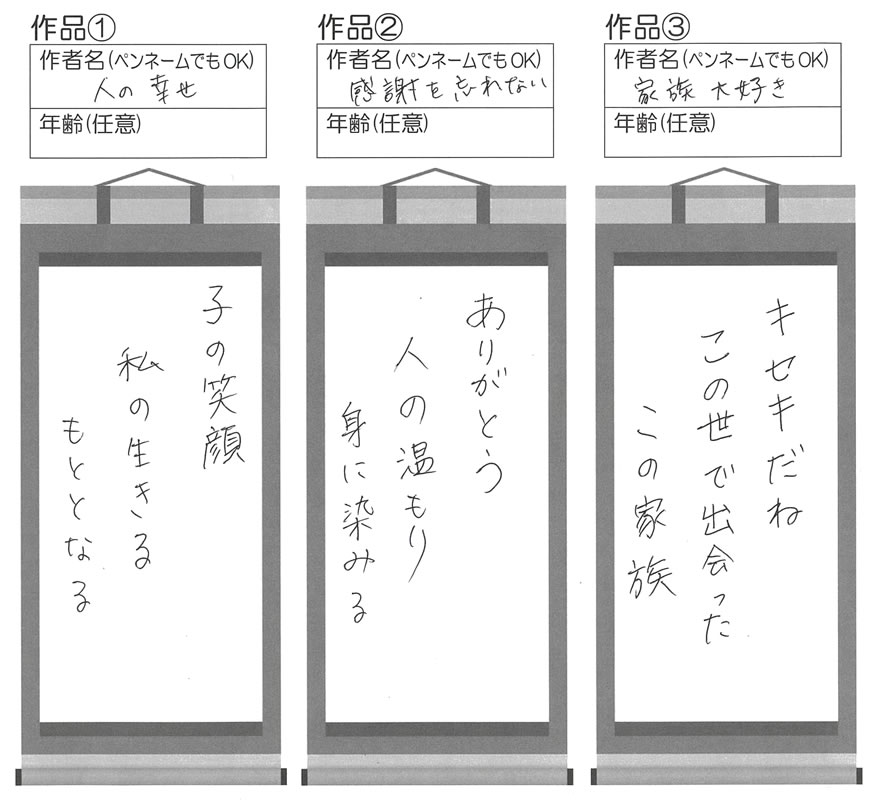 作品①
作者名(ペンネームでもOK)
人の幸せ
年齢(任意)
子の笑顔
私の生きる
もととなる
作品②
作者名(ペンネームでもOK)
感謝を忘れない
年齢(任意)
ありがとう
人の温もり
身に染みる
作品③
作者名(ペンネームでもOK)
家族大好き
年齢(任意)
キセキだね
この世で出会った
この家族